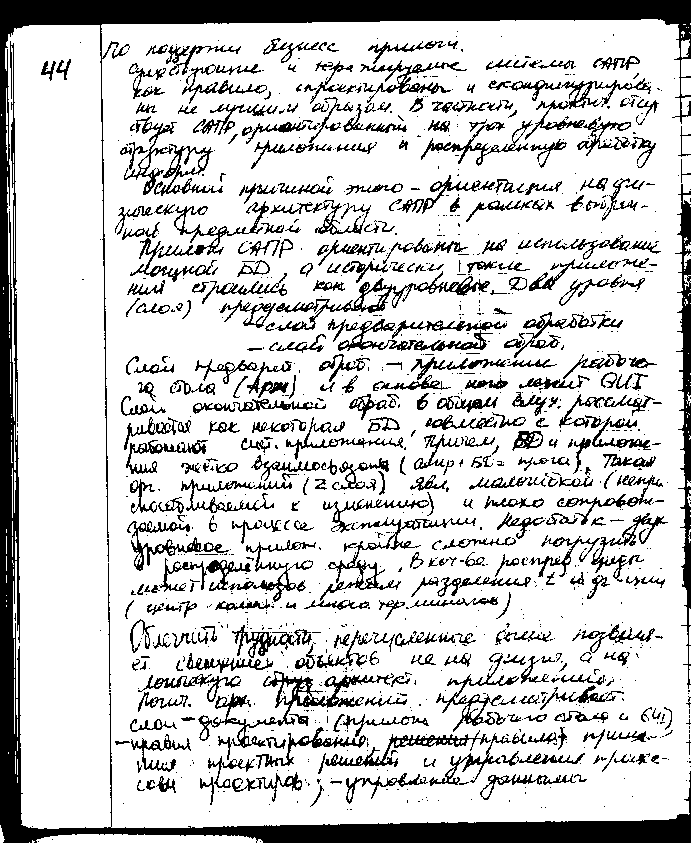 44
По поддержки бизнесс прилож.
Существующие и тиражируемые системы САПР,
как правило, спроектированы и сконфигурирова-
ны не лучшим образом. В частности, практич. отсут
ствует САПР, ориентированный на трех уровневую
структуру приложения и распределенную обработку
информ.
Основной причиной этого – ориентация на фи-
зическую архитектуру САПР в рамках выбран-
ной предметной области.
Прилож САПР ориентированы на использование
мощной БД, а исторически такие приложе-
ния строились как двухуровневые. Два уровня
(слоя) предусматривают
– слой предварительной обработки
– слой окончательной обраб.
Слой предварит. обраб. – приложение рабоче-
го стола и в основе него лежит GUI
Слой окончательной обраб. в общем случ. рассмат-
ривается как некоторая БД, совместно с которой
работают сист. приложения. Причем, БД и приложе-
ния жестко взаимосвязаны. Такая
орг. приложений (2 слоя) явл. малогибкой (непри-
спосабливаемой к изменению) и плохо сопровож-
даемой в процессе эксплуатации. Недостаток – двух
уровневое прилож. крайне сложно погрузить
в распределенную среду. В кач-ве распред. среды
может использов режим разделения t
(центр. комп. и много терминалов)
Облегчить трудности, перечисленные выше позволя-
ет объектов не на физич, а на
логическую архитект. приложений.
Логич. арх. приложений предусматривает
слои – документа (прилож рабочего стола и GUI)
– правил проектирования, (правила) приня-
тия проектных решений и управления процес-
сами проектиров; – управление данными